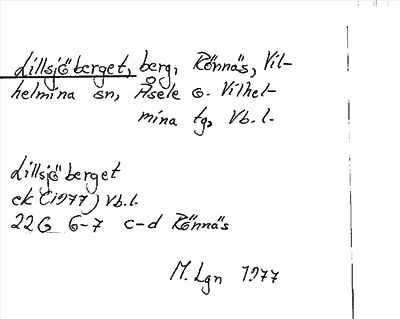 Lillsjöberget, berg, Rönnäs, Vil-
helmina sn, Åsele o. Vilhel-
mina tg, Vb. l.
Lillsjöberget
ek (1977) Vb. l.
22G 6-7 c-d Rönnäs
M. Lgn 1977